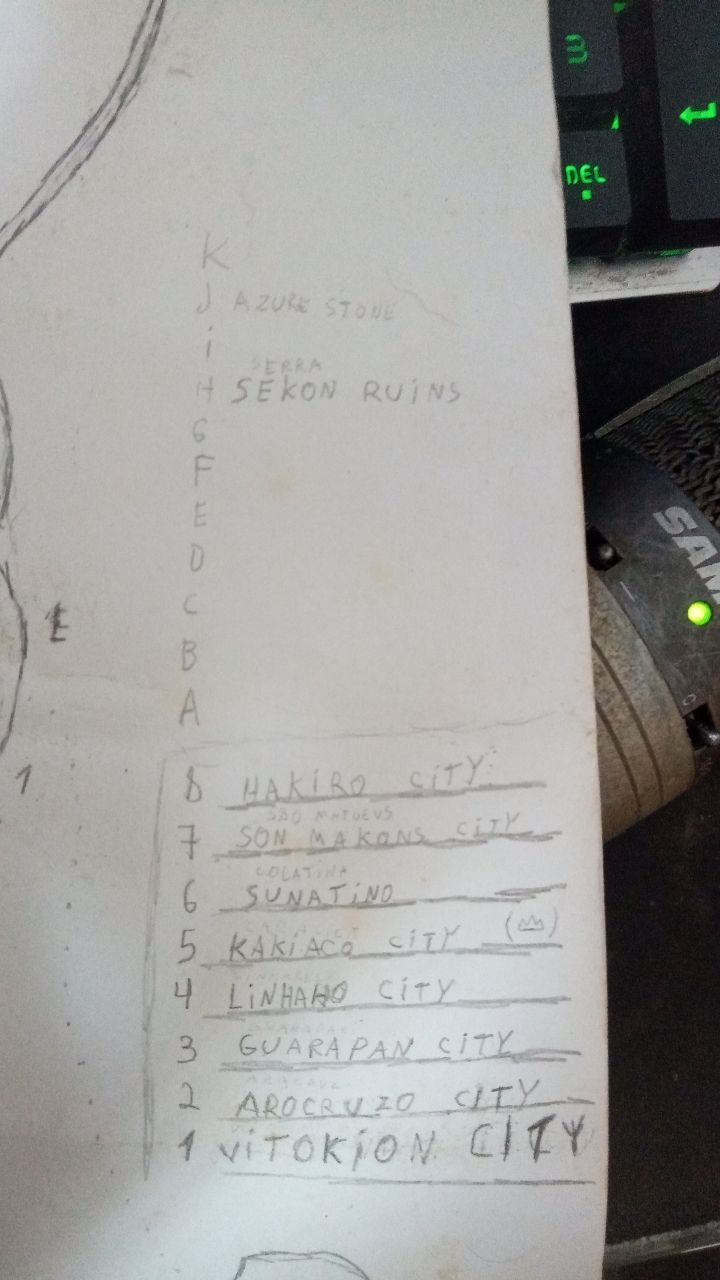 3
DEL
K
J AZURE STONE
i
SERRA
H SEKON RUiNS
G
F
E
D
C
B
A
1
8 HAKIRO CiTY
SÃO MATUEUS
7 SON MAKONS CiTY
COLATiNA
6 SUNATiNO
5 KAKiACO CiTY
4 LiNHAHO CiTY
3 GUARAPAN CiTY
2 AROCRUZO CITY
1 ViTOKiON CITY
SAM
0